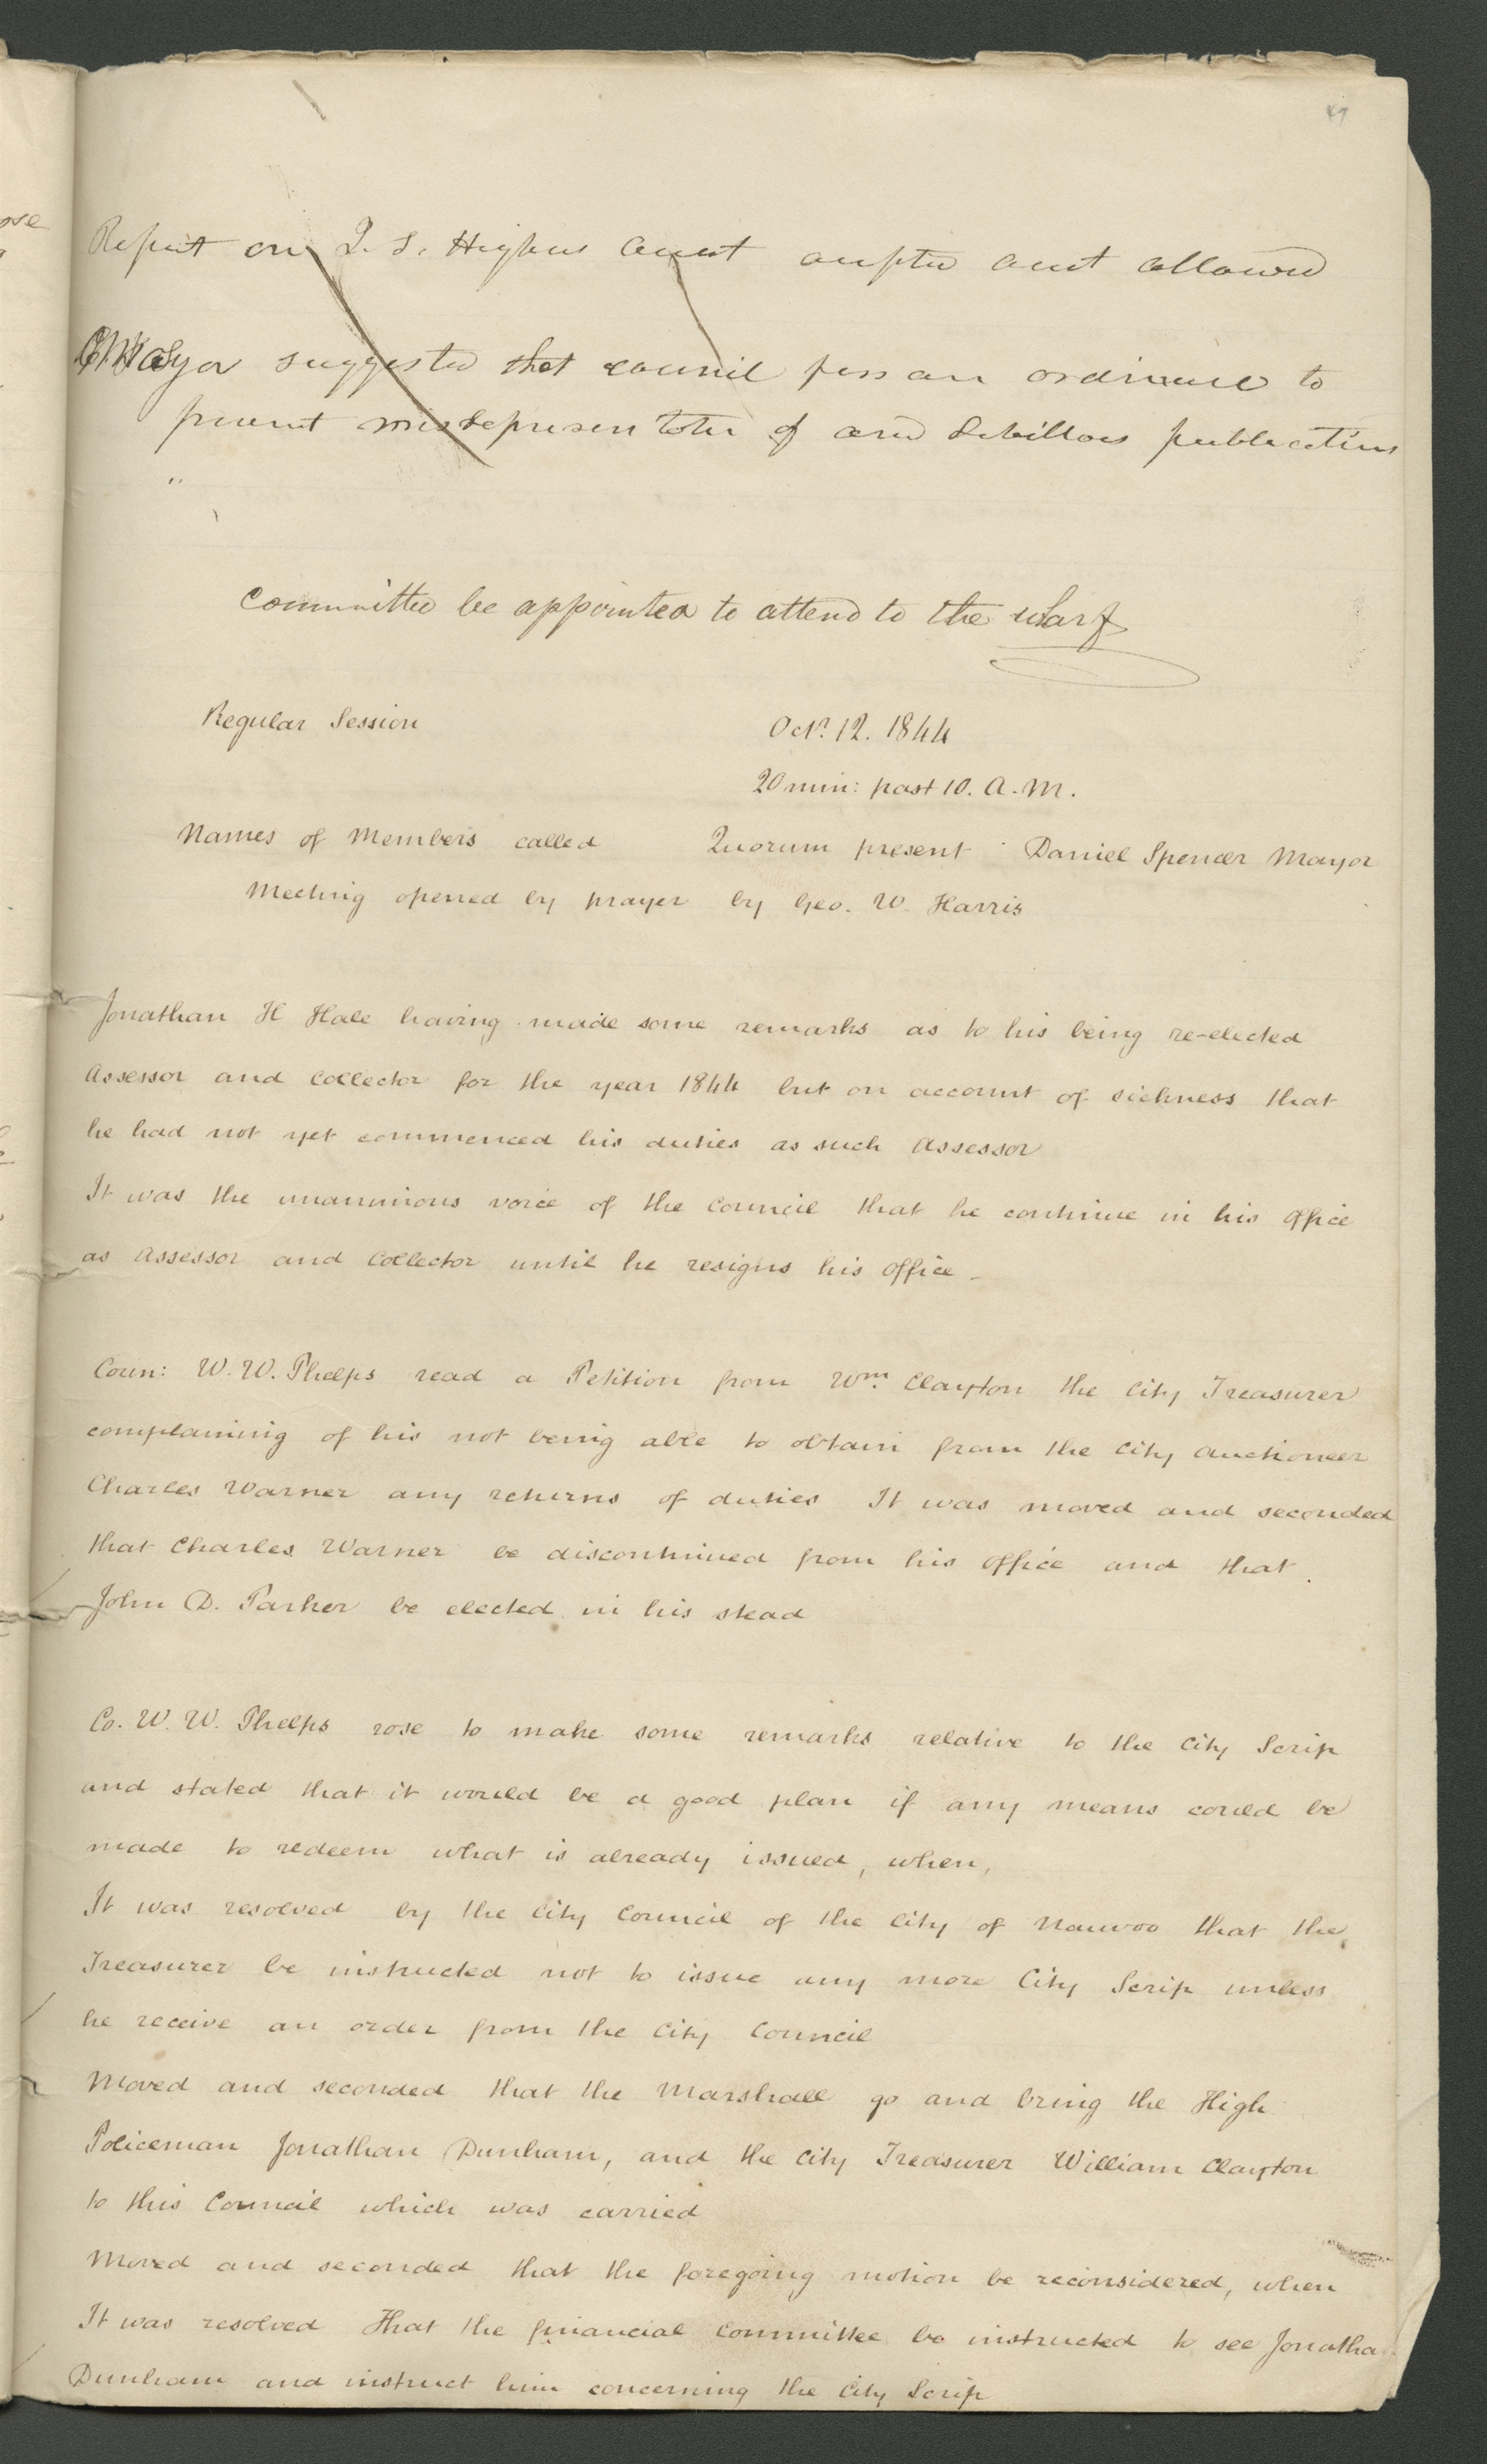 49
Report on I. S. Higbees acust acuptd acut allowed
Mayor suggested that council pass an ordinance to
prevent misrepresentatn of and Libillous publications
"
committee be appointed to attend to the wharf
Regular Session Octr. 12. 1844
20 min: past 10. A. M.
Names of Members called Quorum present Daniel Spencer Mayor
Meeting opened by prayer by Geo. W. Harris
Jonathan H Hale having made some remarks as to his being re-elected
Assessor and Collector for the year 1844 but on account of sickness that
he had not yet commenced his duties as such Assessor
It was the unanimous voice of the Council that he continue in his office
as Assessor and Collector until he resigns his office -
Coun: W. W. Phelps read a Petition from Wm. Clayton the City Treasurer
complaining of his not being able to obtain from the City Auctioneer
Charles Warner any returns of duties It was moved and seconded
that Charles Warner be discontinued from his office and that
John D. Parker be elected in his stead
Co. W. W. Phelps rose to make some remarks relative to the City Scrip
and stated that it would be a good plan if any means could be
made to redeem what is already issued, when,
It was resolved by the City Council of the City of Nauvoo that the
Treasurer be instructed not to issue any more City Scrip unless
he receive an order from the City Council
Moved and seconded that the Marshall go and bring the High
Policeman Jonathan Dunham, and the City Treasurer William Clayton
to this Council which was carried
Moved and seconded that the foregoing motion be reconsidered, when
It was resolved That the financial Committee be instructed to see Jonatha
Dunham and instruct him concerning the City Scrip